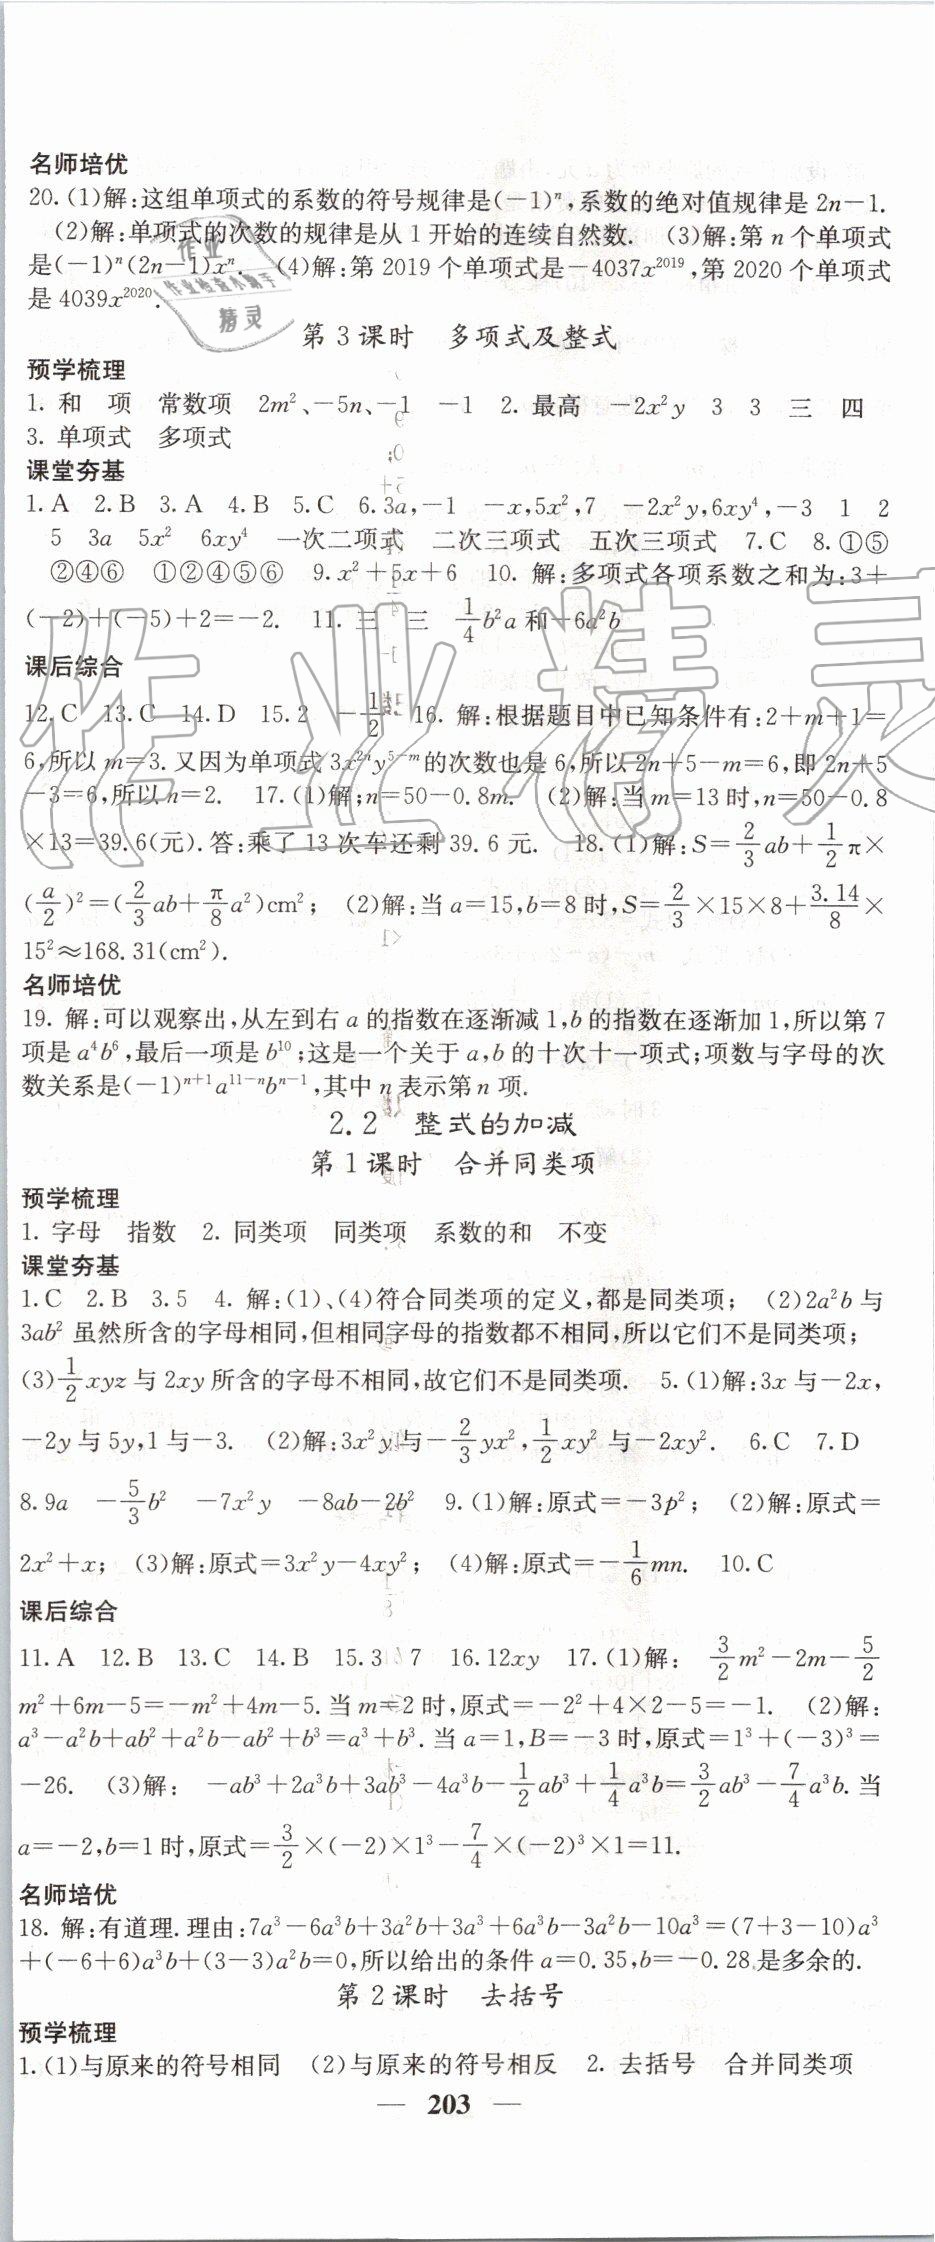 名师培优
20.(1)解:这组单项式的系数的符号规律是(-1)ⁿ,系数的绝对值规律是 2n-1.
(2)解:单项式的次数的规律是从 1 开始的连续自然数. (3)解:第 n 个单项式
是(-1)ⁿ(2n-1)xⁿ. (4)解:第 2019 个单项式是-4037x²⁰¹⁹,第 2020 个单项式
是 4039x²⁰²⁰.
第 3 课时 多项式及整式
预学梳理
1. 和 项 常数项 2m²、-5n、-1 -1 2. 最高 -2x²y 3 3 三 四
3. 单项式 多项式
课堂夯基
1.A 2.B 3.A 4.B 5.C 6.3a,-1 -x,5x²,7 -2x²y,6xy⁴,-3 1 2
5 3a 5x² 6xy⁴ 一次二项式 二次三项式 五次三项式 7.C 8.①⑤
②④⑥ ①②④⑤⑥ 9.x²+5x+6 10. 解:多项式各项系数之和为:3+
(-2)+(-5)+2=-2. 11. 三 三 1/4 b²a 和-6a²b
课后综合
12.C 13.C 14.D 15.2 -1/2 16. 解:根据题目中已知条件有:2+m+1=
6,所以 m=3.又因为单项式 3x²ⁿy⁵⁻ᵐ的次数也是 6,所以 2n+5-m=6,即 2n+5
-3=6,所以 n=2. 17.(1)解;n=50-0.8m. (2)解:当 m=13 时,n=50-0.8
×13=39.6(元).答:乘了 13 次车还剩 39.6 元. 18.(1)解:S=2/3 ab+1/2 π×
(a/2)²=(2/3 ab+π/8 a²)cm²; (2)解:当 a=15,b=8 时,S=2/3×15×8+3.14/8×
15²≈168.31(cm²).
名师培优
19. 解:可以观察出,从左到右 a 的指数在逐渐减 1,b 的指数在逐渐加 1,所以第 7
项是 a⁴b⁶,最后一项是 b¹⁰;这是一个关于 a,b 的十次十一项式;项数与字母的次
数关系是(-1)ⁿ⁺¹a¹¹⁻ⁿbⁿ⁻¹,其中 n 表示第 n 项.
2.2 整式的加减
第 1 课时 合并同类项
预学梳理
1. 字母 指数 2. 同类项 同类项 系数的和 不变
课堂夯基
1.C 2.B 3.5 4. 解:(1)、(4)符合同类项的定义,都是同类项; (2)2a²b 与
3ab² 虽然所含的字母相同,但相同字母的指数都不相同,所以它们不是同类项;
(3)1/2 xyz 与 2xy 所含的字母不相同,故它们不是同类项. 5.(1)解:3x 与-2x,
-2y 与 5y,1 与-3. (2)解:3x²y 与-2/3 yx²,1/2 xy² 与-2xy². 6.C 7.D
8.9a -5/3 b² -7x²y -8ab-2b² 9.(1)解:原式=-3p²; (2)解:原式=
2x²+x; (3)解:原式=3x²y-4xy²; (4)解:原式=-1/6 mn. 10.C
课后综合
11.A 12.B 13.C 14.B 15.3 7 16.12xy 17.(1)解: 3/2 m²-2m-5/2
m²+6m-5=-m²+4m-5.当 m=2 时,原式=-2²+4×2-5=-1. (2)解:
a³-a²b+ab²+a²b-ab²+b³=a³+b³.当 a=1,B=-3 时,原式=1³+(-3)³=
-26. (3)解: -ab³+2a³b+3ab³-4a³b-1/2 ab³+1/4 a³b=3/2 ab³-7/4 a³b.当
a=-2,b=1 时,原式=3/2×(-2)×1³-7/4×(-2)³×1=11.
名师培优
18. 解:有道理.理由:7a³-6a³b+3a²b+3a³+6a³b-3a²b-10a³=(7+3-10)a³
+(-6+6)a³b+(3-3)a²b=0,所以给出的条件 a=0.35,b=-0.28 是多余的.
第 2 课时 去括号
预学梳理
1.(1)与原来的符号相同 (2)与原来的符号相反 2. 去括号 合并同类项
— 203 —
作业
作业检查小助手
精灵
作业精灵